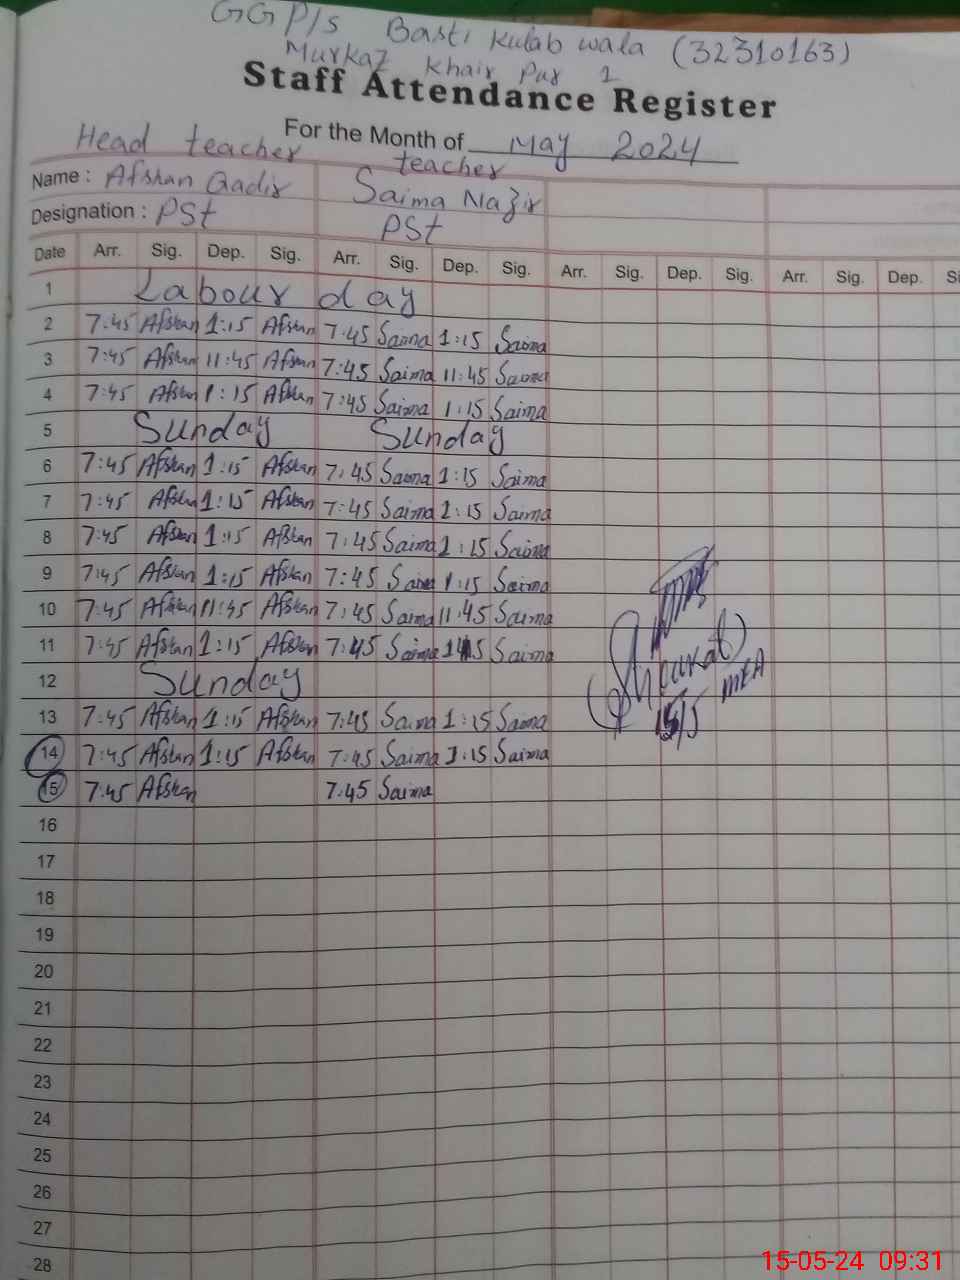 GGP/s Basti Kulab wala (32310163)
Murkaz Khair Pur 1
Staff Attendance Register
For the Month of May 2024
Head teacher teacher
Name : Afshan Qadir Saima Nazir
Designation : PSt PSt
Date Arr. Sig. Dep. Sig. Arr. Sig. Dep. Sig. Arr. Sig. Dep. Sig. Arr. Sig. Dep. Si
1 Labour day
2 7:45 Afshan 1:15 Afshan 7:45 Saima 1:15 Saima
3 7:45 Afshan 11:45 Afshan 7:45 Saima 11:45 Saima
4 7:45 Afshan 1:15 Afshan 7:45 Saima 1:15 Saima
5 Sunday Sunday
6 7:45 Afshan 1:15 Afshan 7:45 Saima 1:15 Saima
7 7:45 Afshan 1:15 Afshan 7:45 Saima 1:15 Saima
8 7:45 Afshan 1:15 Afshan 7:45 Saima 1:15 Saima
9 7:45 Afshan 1:15 Afshan 7:45 Saima 1:15 Saima
10 7:45 Afshan 11:45 Afshan 7:45 Saima 11:45 Saima
11 7:45 Afshan 1:15 Afshan 7:45 Saima 1:15 Saima
12 Sunday
13 7:45 Afshan 1:15 Afshan 7:45 Saima 1:15 Saima
14 7:45 Afshan 1:15 Afshan 7:45 Saima 1:15 Saima
15 7:45 Afshan 7:45 Saima
(Shoukat)
MEA
15/5
16
17
18
19
20
21
22
23
24
25
26
27
28
15-05-24 09:31